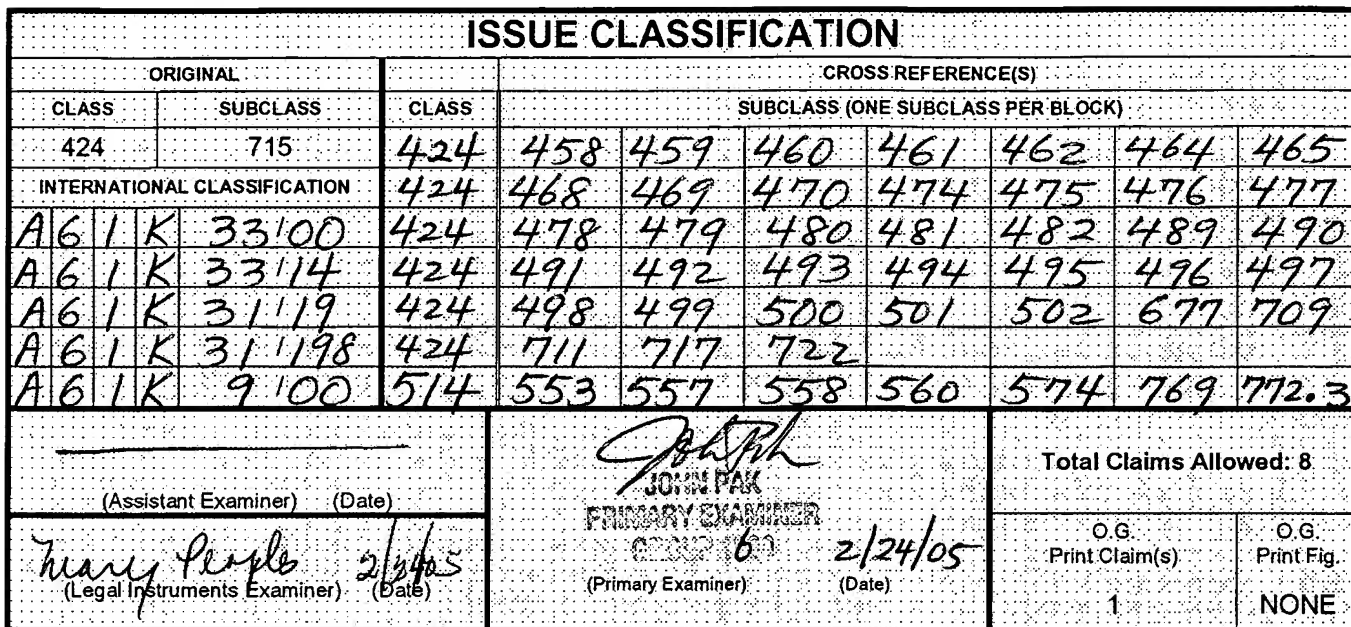 ISSUE CLASSIFICATION
ORIGINAL CROSS REFERENCE(S)
CLASS SUBCLASS CLASS SUBCLASS (ONE SUBCLASS PER BLOCK)
424 715 424 458 459 460 461 462 464 465
INTERNATIONAL CLASSIFICATION 424 468 469 470 474 475 476 477
A 6 1 K 33/00 424 478 479 480 481 482 489 490
A 6 1 K 33/14 424 491 492 493 494 495 496 497
A 6 1 K 31/19 424 498 499 500 501 502 677 709
A 6 1 K 31/198 424 711 717 722
A 6 1 K 9/00 514 553 557 558 560 574 769 772.3
(Assistant Examiner) (Date)
Mary Peoples
(Legal Instruments Examiner) (Date)
John Pak
JOHN PAK
PRIMARY EXAMINER
2/24/05
(Primary Examiner) (Date)
Total Claims Allowed: 8
O.G. Print Claim(s)
1
O.G. Print Fig.
NONE